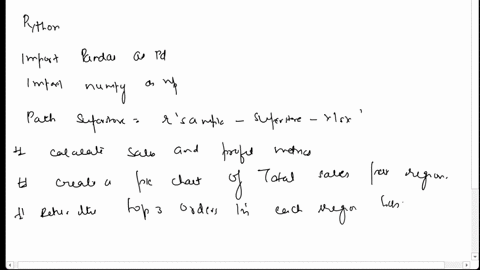 Python
Import Pandas as Pd
Import numpy as np
Path Superstore = r'sample - superstore - xlsx'
# calculate sales and profit metrics
# create a pie chart of Total sales per region.
# top 3 orders in each region